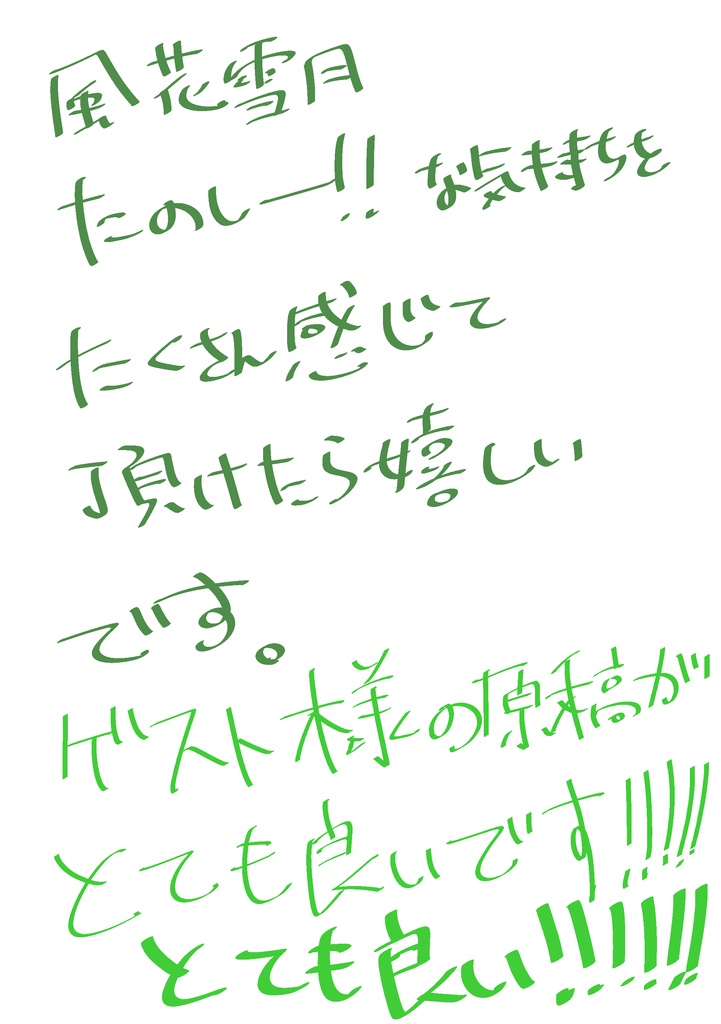 風花雪月
たのしー!! な気持ちを
たくさん感じて
頂けたら嬉しい
です。
ゲスト様の原稿が
とても良いです!!!!!
とても良い!!!!!!